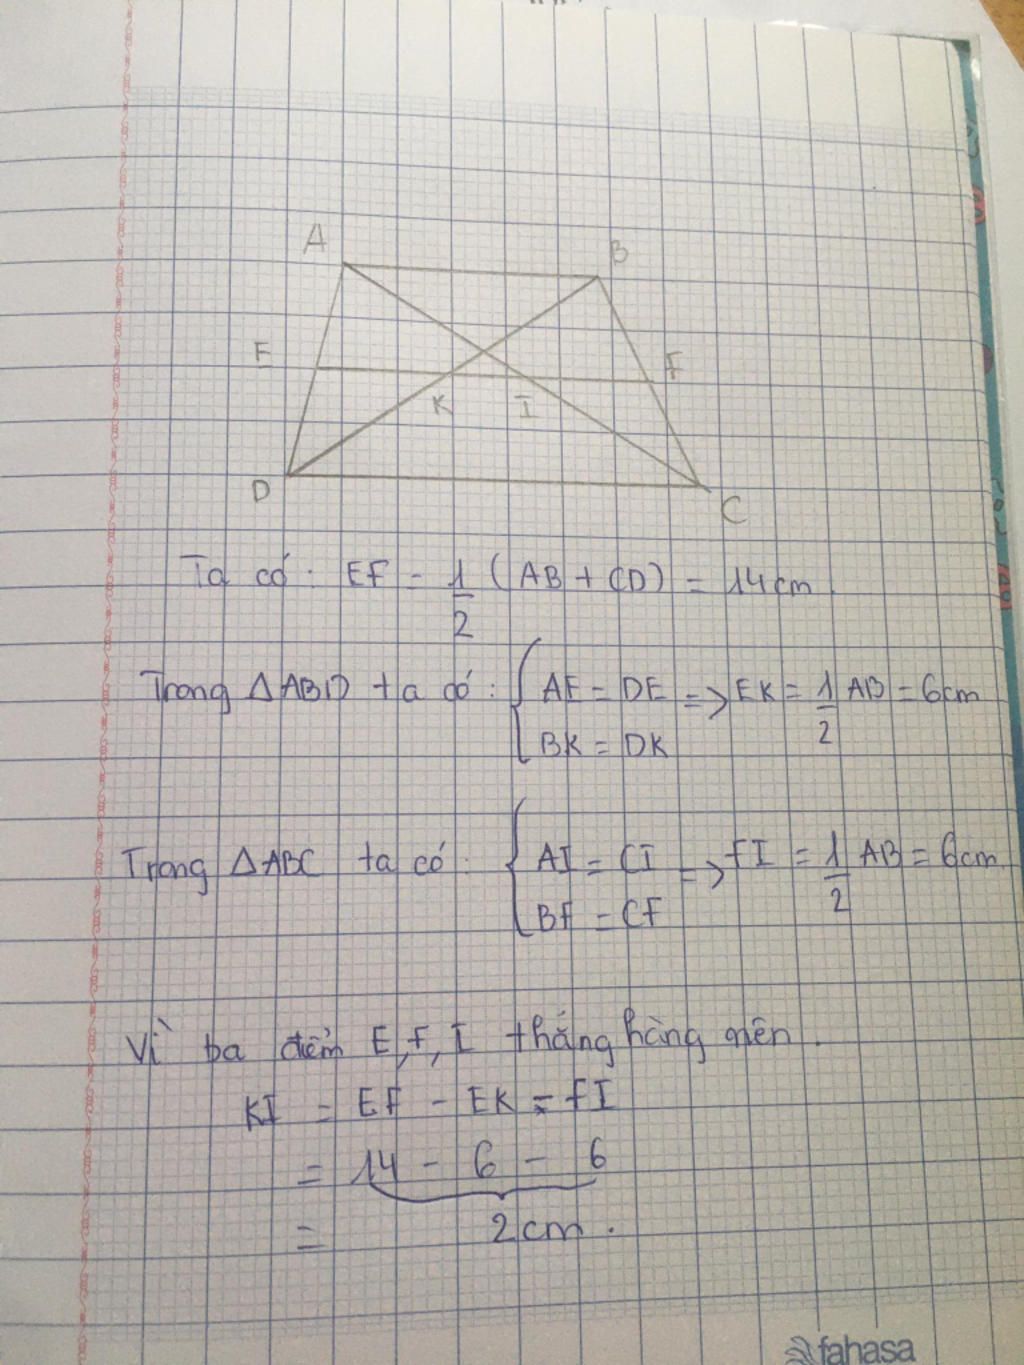 A
B
E
F
K
I
D
C
Ta có: EF = 1/2 (AB + CD) = 14cm.
Trong △ABD ta có: { AE = DE => EK = 1/2 AB = 6cm
BK = DK
Trong △ABC ta có: { AI = CI => FI = 1/2 AB = 6cm
BF = CF
Vì ba điểm E, F, I thẳng hàng nên.
KI = EF - EK - FI
= 14 - 6 - 6
= 2cm.
fahasa